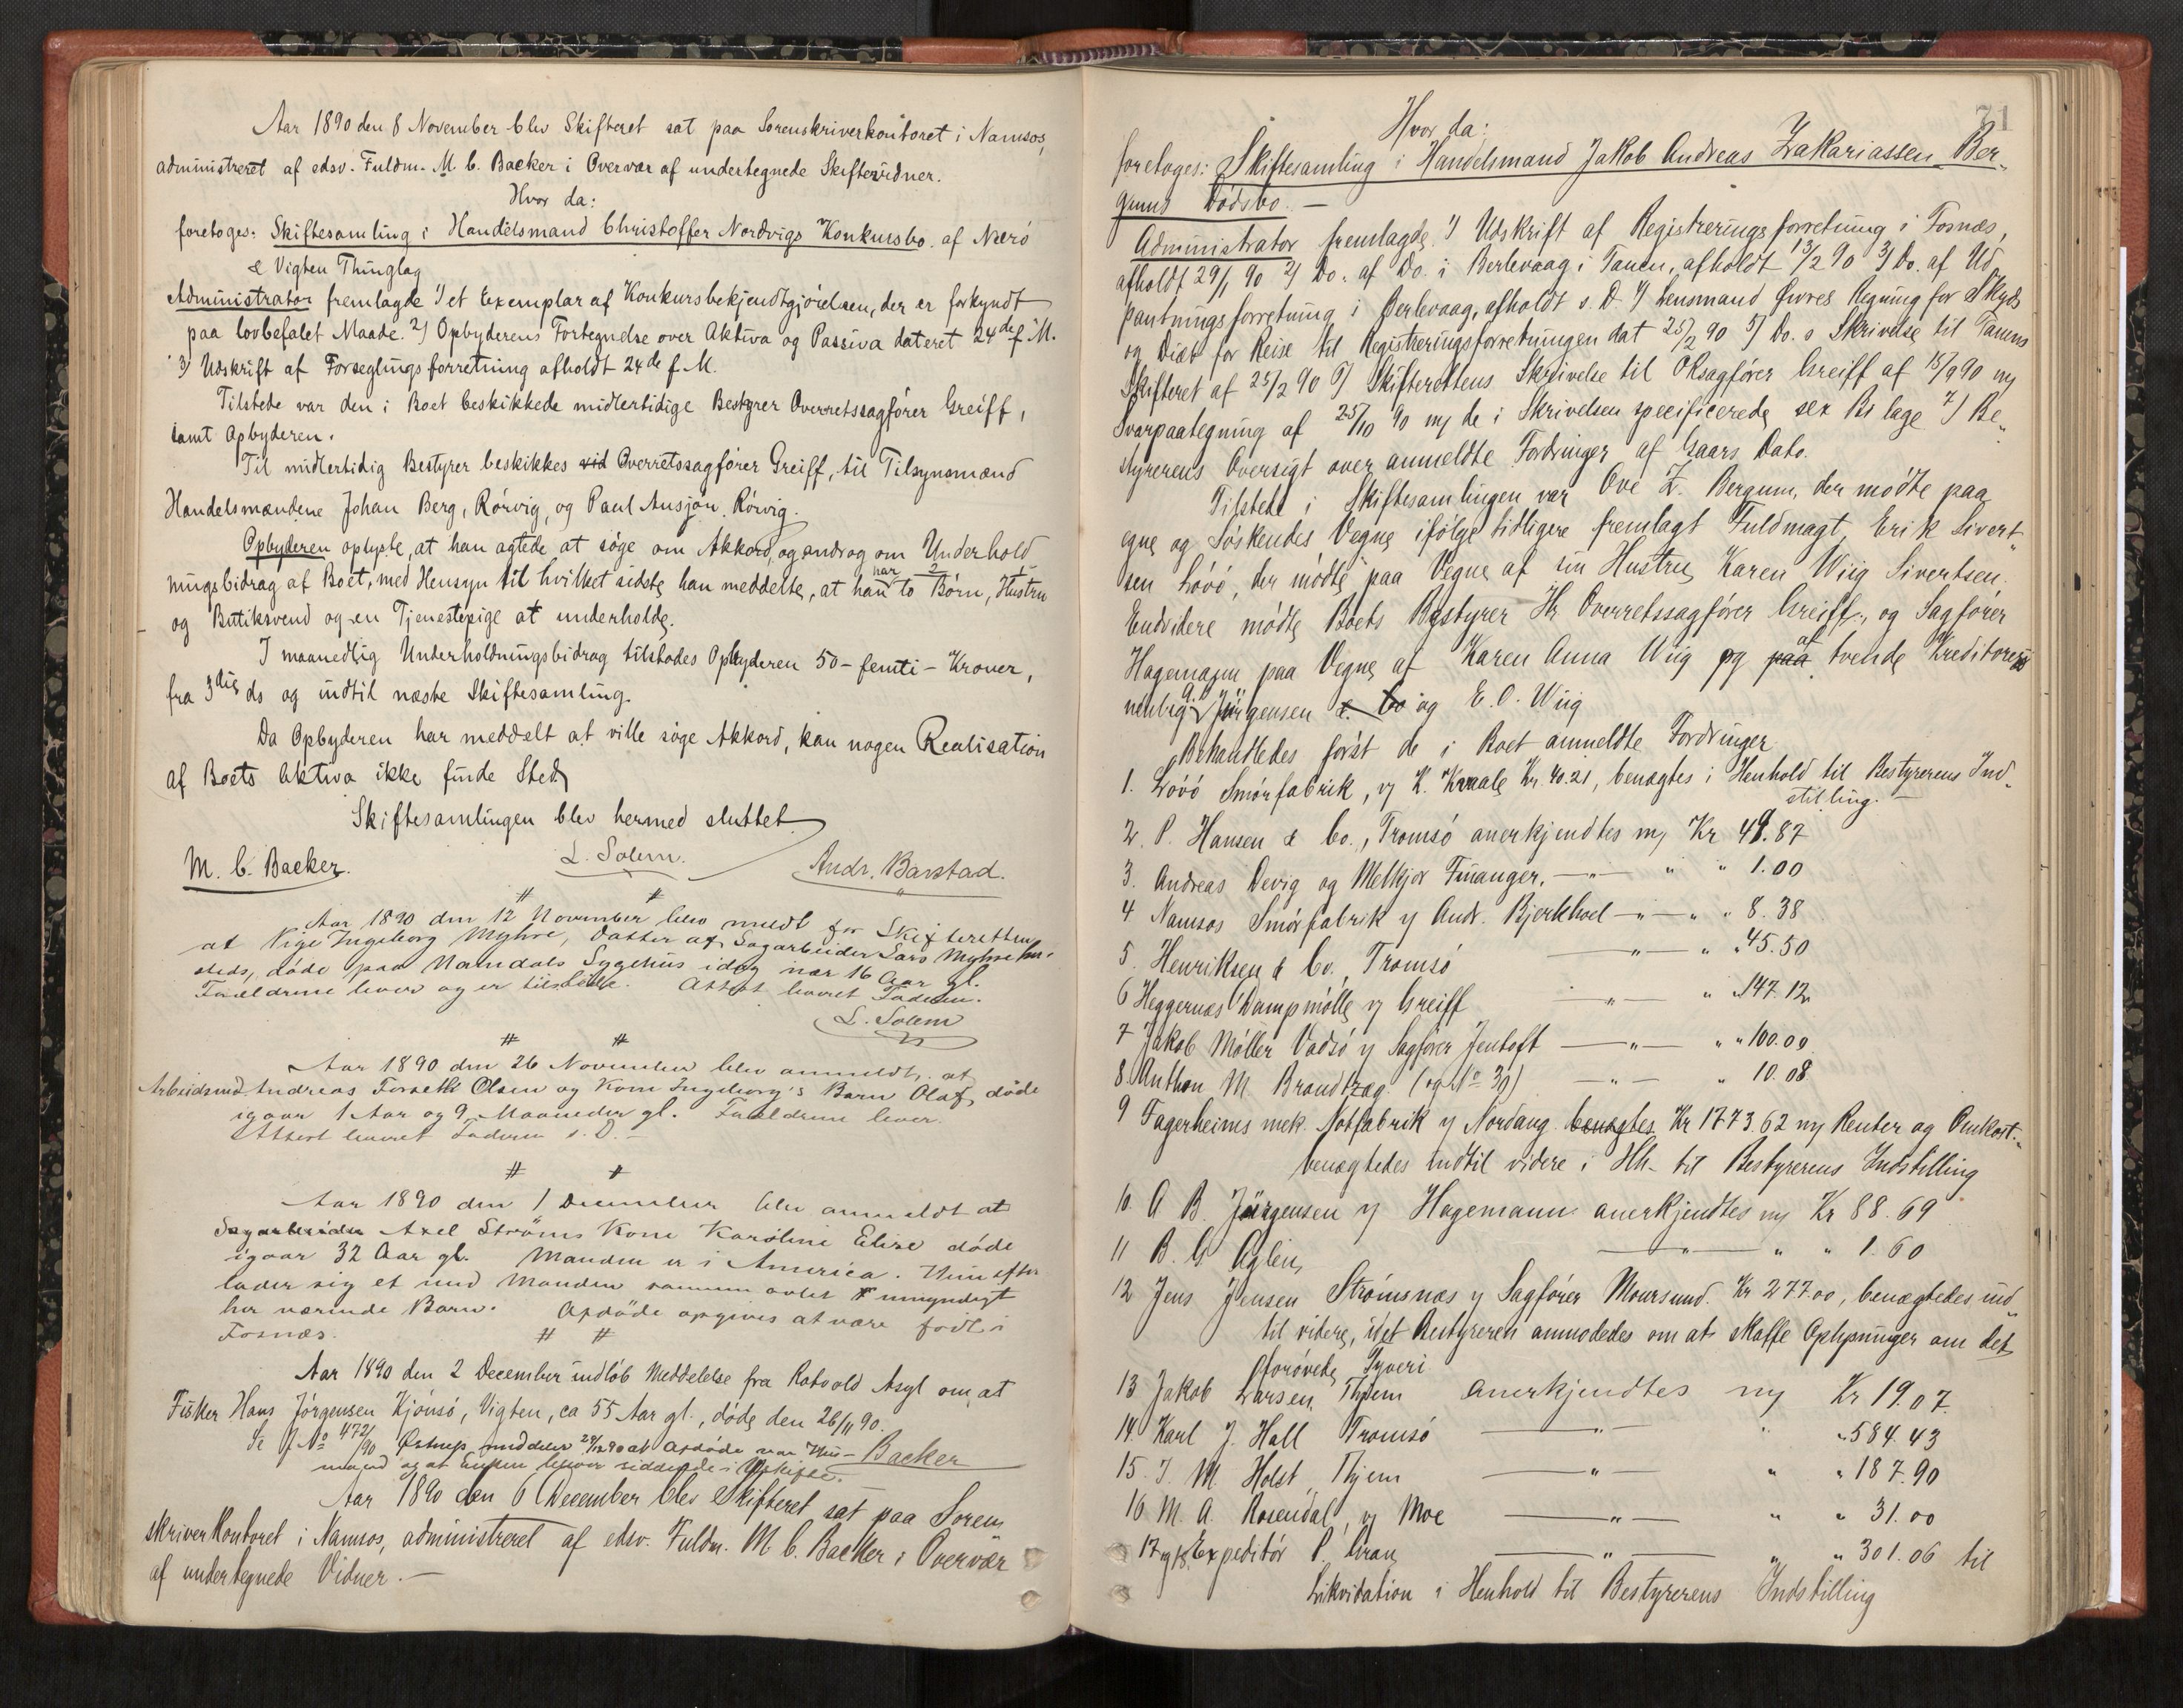 Aar 1890 den 8 November blev Skifteret sat paa Sorenskriverkontoret i Namsos,
administreret af edsv. Fuldm. M. C. Backer i Overvær af undertegnede Skiftevidner.
Hvor da:
foretoges: Skiftesamling i Handelsmand Christoffer Nordvigs Konkursbo af Nærö
& Vigten Thinglag
Administrator fremlagde 1) et Exemplar af Konkursbekjendtgjörelsen, der er forkyndt
paa lovbefalet Maade. 2) Opbyderens Fortegnelse over Aktiva og Passiva dateret 24de f. M.
3) Udskrift af Forseglingsforretning afholdt 24de f. M.
Tilstede var den i Boet beskikkede midlertidige Bestyrer Overretssagförer Greiff,
samt Opbyderen.
Til midlertidig Bestyrer beskikkes vid Overretssagförer Greiff, til Tilsynsmænd
Handelsmændene Johan Berg, Rörvig, og Paul Ausjön, Rörvig.
Opbyderen oplyste, at han agtede at söge om Akkord, og androg om Underhold
ningsbidrag af Boet, med Hensyn til hvilket sidste han meddelte, at han har to 2 Börn, Hustru
og Butiksvend og en Tjenestepige at underholde.
I maanedlig Underholdningsbidrag tilstodes Opbyderen 50 - femti - Kroner,
fra 3die ds og indtil næste Skiftesamling.
Da Opbyderen har meddelt at ville söge Akkord, kan nogen Realisation
af Boets Aktiva ikke finde Sted
Skiftesamlingen blev hermed sluttet
M. C. Backer. L. Solem. Andr. Barstad.
# #
Aar 1890 den 12 November blev meldt for Skifteretten
at Pige Ingeborg Myhre, Datter af Sagarbeider Lars Myhre her
steds, döde paa Namdals Sygehus idag nær 16 Aar gl.
Forældrene lever og er tilstede. Attest leveret Faderen.
L. Solem
# #
Aar 1890 den 26 November blev anmeldt, at
Arbeidsmd. Andreas Forseth Olsen og Kone Ingeborg's Barn Olaf, döde
igaar 1 Aar og 9 Maaneder gl. Forældrene lever.
Attest leveret Faderen s. D. -
# #
Aar 1890 den 1 December blev anmeldt at
Sagarbeider Axel Ströms Kone Karoline Elise döde
igaar 32 Aar gl. Manden er i America. Hun efter
lader sig et med Manden sammen avlet umyndigt
her værende Barn. Afdöde opgives at være födt i
Fosnæs.
# #
Aar 1890 den 2 December indlöb Meddelelse fra Rotvold Asyl om at
Fisker Hans Jörgensen Kjönsö, Vigten, ca 55 Aar gl., döde den 26/11 90.
Se J No 472/90 Østnes meddeler 29/12 90 at Afdöde var Hus- Backer
mand og at Enken lever siddende i Uskifte.
Aar 1890 den 6 December blev Skifteret sat paa Soren
skriverkontoret i Namsos, administreret af edsv. Fuldm. M C. Backer i Overvær
af undertegnede Vidner. -
71
Hvor da:
foretoges: Skiftesamling i Handelsmand Jakob Andreas Zakariassen Ber-
gums Dödsbo. -
Administrator fremlagde 1) Udskrift af Registreringsforretning i Fosnæs,
afholdt 29/1 90 2) Do. af Do. i Berlevaag i Tanen, afholdt 13/2 90 3) Do. af Ud
pantningsforretning i Berlevaag, afholdt s. D. 4) Lensmand Øvres Regning for Skyds
og Diæt for Reise til Registreringsforretningen dat 25/2 90 5) Do. s Skrivelse til Tanens
Skifteret af 25/2 90 6) Skifterettens Skrivelse til OKsagförer Greiff af 15/9 90 m/
Svarpaategning af 25/10 90 m/ de i Skrivelsen specificerede sex Bilage 7) Be
styrerens Oversigt over anmeldte Fordringer af Gaars Dato.
Tilstede i Skiftesamlingen var Ove Z. Bergum, der mödte paa
egne og Söskendes Vegne ifölge tidligere fremlagt Fuldmagt, Erik Sivert
sen Lövö, der mödte paa Vegne af sin Hustru Karen Wiig Sivertsen.
Endvidere mödte Boets Bestyrer Hr Overretssagförer Greiff, og Sagförer
Hagemann paa Vegne af Karen Anna Wiig og paa af tvende Kreditorer
nemlig A. Jürgensen & Co og E. O. Wiig
Behandledes först de i Boet anmeldte Fordringer
1. Lövö Smörfabrik, v/ K. Kraale Kr. 40.21, benægtes i Henhold til Bestyrerens Ind
stilling. -
2. P. Hansen & Co., Tromsö anerkjendtes m/ Kr 49.87
3. Andreas Devig og Melkjor Finanger. -"- " " 1.00
4 Namsos Smörfabrik v/ Andr. Bjerkhoel -"- " " 8.38
5. Henriksen & Co., Tromsö -"- " " 45.50
6 Heggernæs Dampmölle v/ Greiff -"- " " 147.12
7 Jakob Möller Vadsö v/ Sagförer Jentoft -"- " " 100.00
8. Anthon M. Brandtzæg. (og No 30) -"- " 10.08
9 Fagerheims mek. Notfabrik v/ Nordang. benægtes Kr 1773.62 m/ Renter og Omkost.
benægtedes indtil videre i Hh. til Bestyrerens Indstilling
10. A B. Jürgensen v/ Hagemann anerkjendtes m/ Kr 88.69
11 B. G Aglen -"- " " 1.60
12 Jens Jensen Strömsnæs v/ Sagförer Moursund. Kr 277.00, benægtedes ind
til videre, idet Bestyreren anmodedes om at skaffe Oplysninger om det
oforövede Tyveri
13 Jakob Larsen Thjem anerkjendtes m/ Kr 19.07.
14. Karl J. Hall Tromsö -"- " " 584.43
15. J. M. Holst, Thjem -"- " " 187.90
16. M. A. Rosendal, v/ Moe -"- " " 31.00
17 og 18. Expeditör P. Gran -"- " " 301.06 til
Likvidation i Henhold til Bestyrerens Indstilling